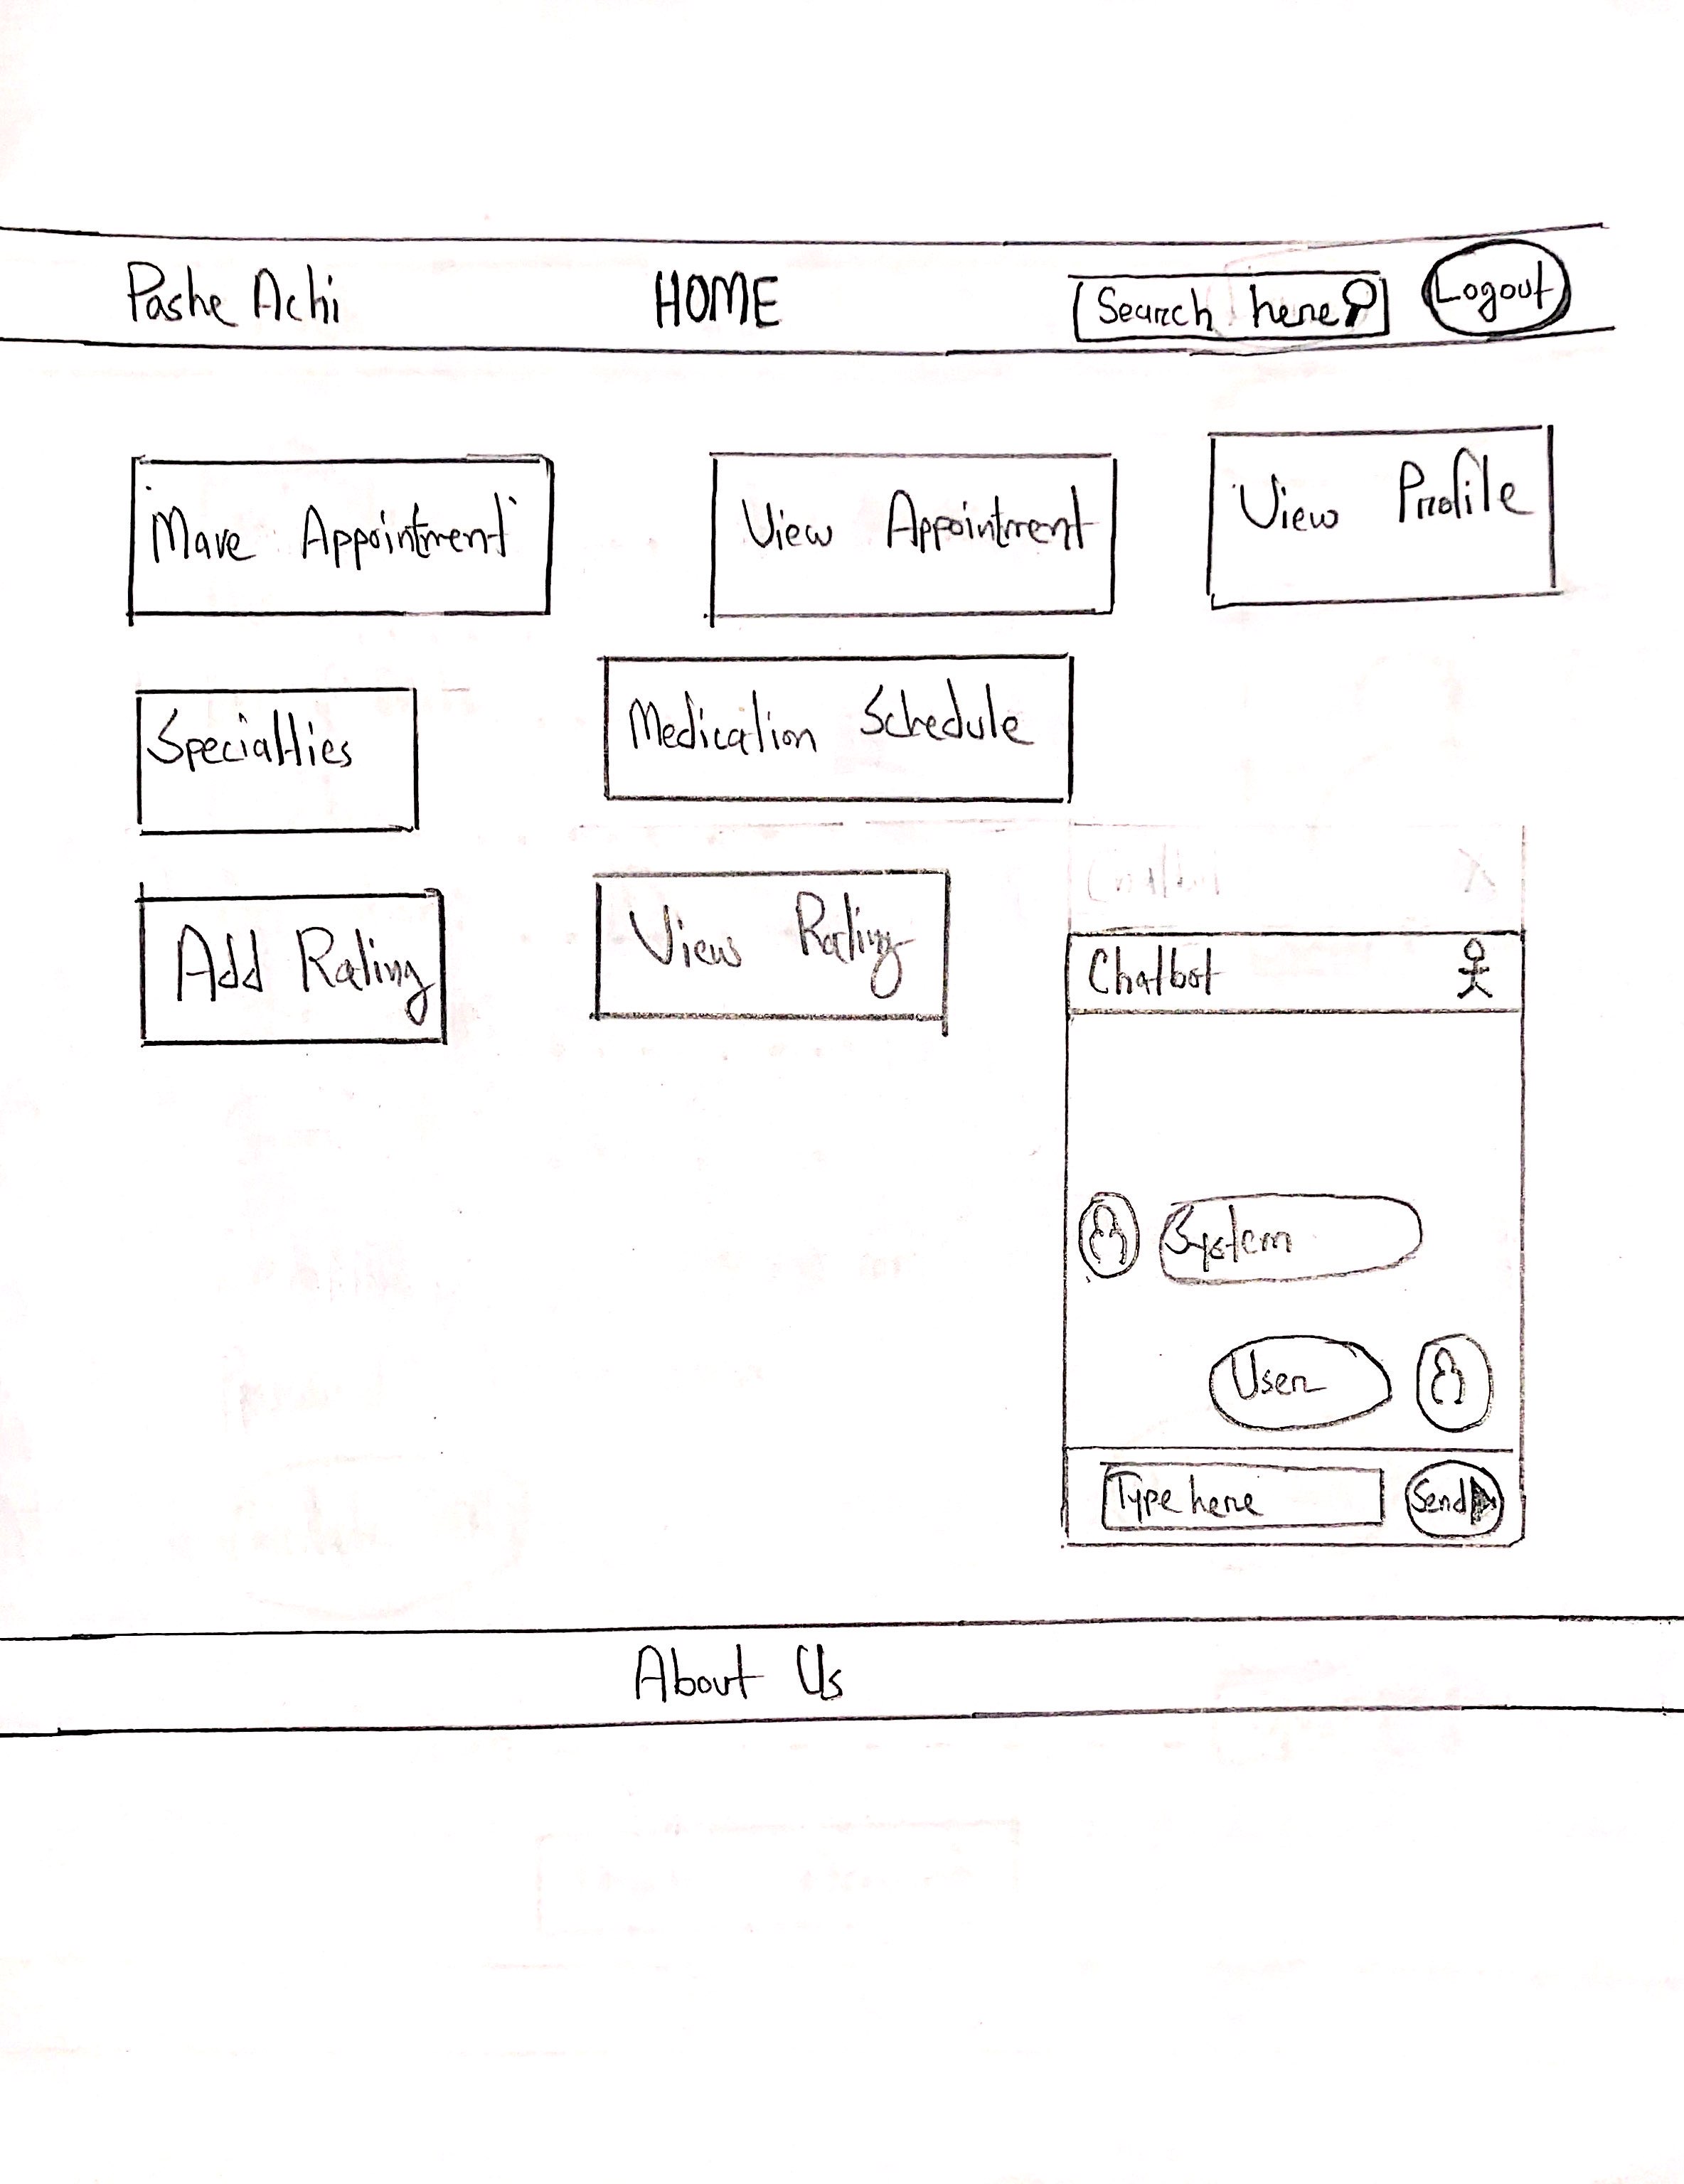 Pashe Achi HOME Search here Logout
Mave Appointment View Appointment View Profile
Specialties Medication Schedule
Add Rating View Rating
Chatbot
System
User
Type here Send
About Us